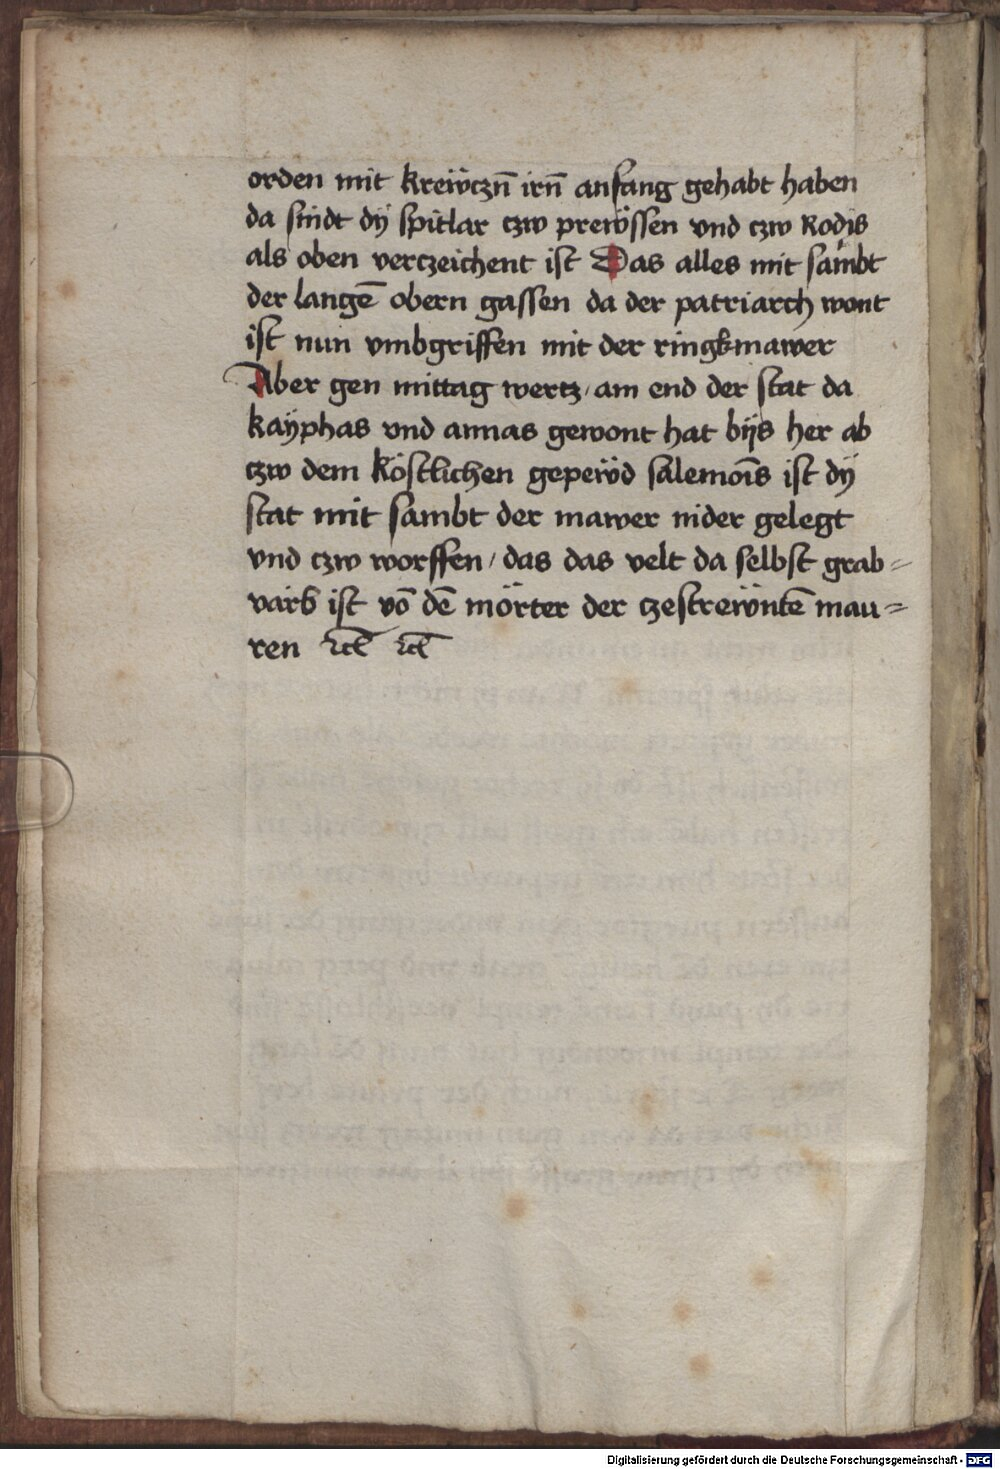 orden mit krewczn̄ irn̄ anfang gehabt haben
da sindt dÿ spitlar czw prewssen vnd czw Rodis
als oben verczeichent ist Das alles mit sambt
der langē obern gassen da der patriarch wont
ist nun vmbgriffen mit der ringkmawer
Aber gen mittag wertz / am end der stat da
kayphas vnd annas gewont hat bÿs her ab
czw dem köstlichen gepewd salemōis ist dÿ
stat mit sambt der mawer nider gelegt
vnd czw worffen / das das velt da selbst grab=
varb ist vō dē mörter der czestrewntē mau=
ren ꝛcͣ ꝛcͣ
Digitalisierung gefördert durch die Deutsche Forschungsgemeinschaft - DFG